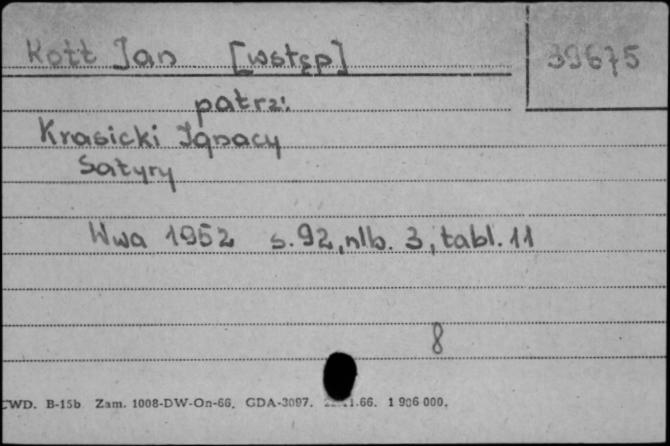 Kott Jan [wstęp] 39675
patrz:
Krasicki Ignacy
Satyry
Wwa 1952 s. 92, nlb. 3, tabl. 11
8
CWD. B-15b Zam. 1008-DW-On-66. GDA-3097. .66. 1 906 000.